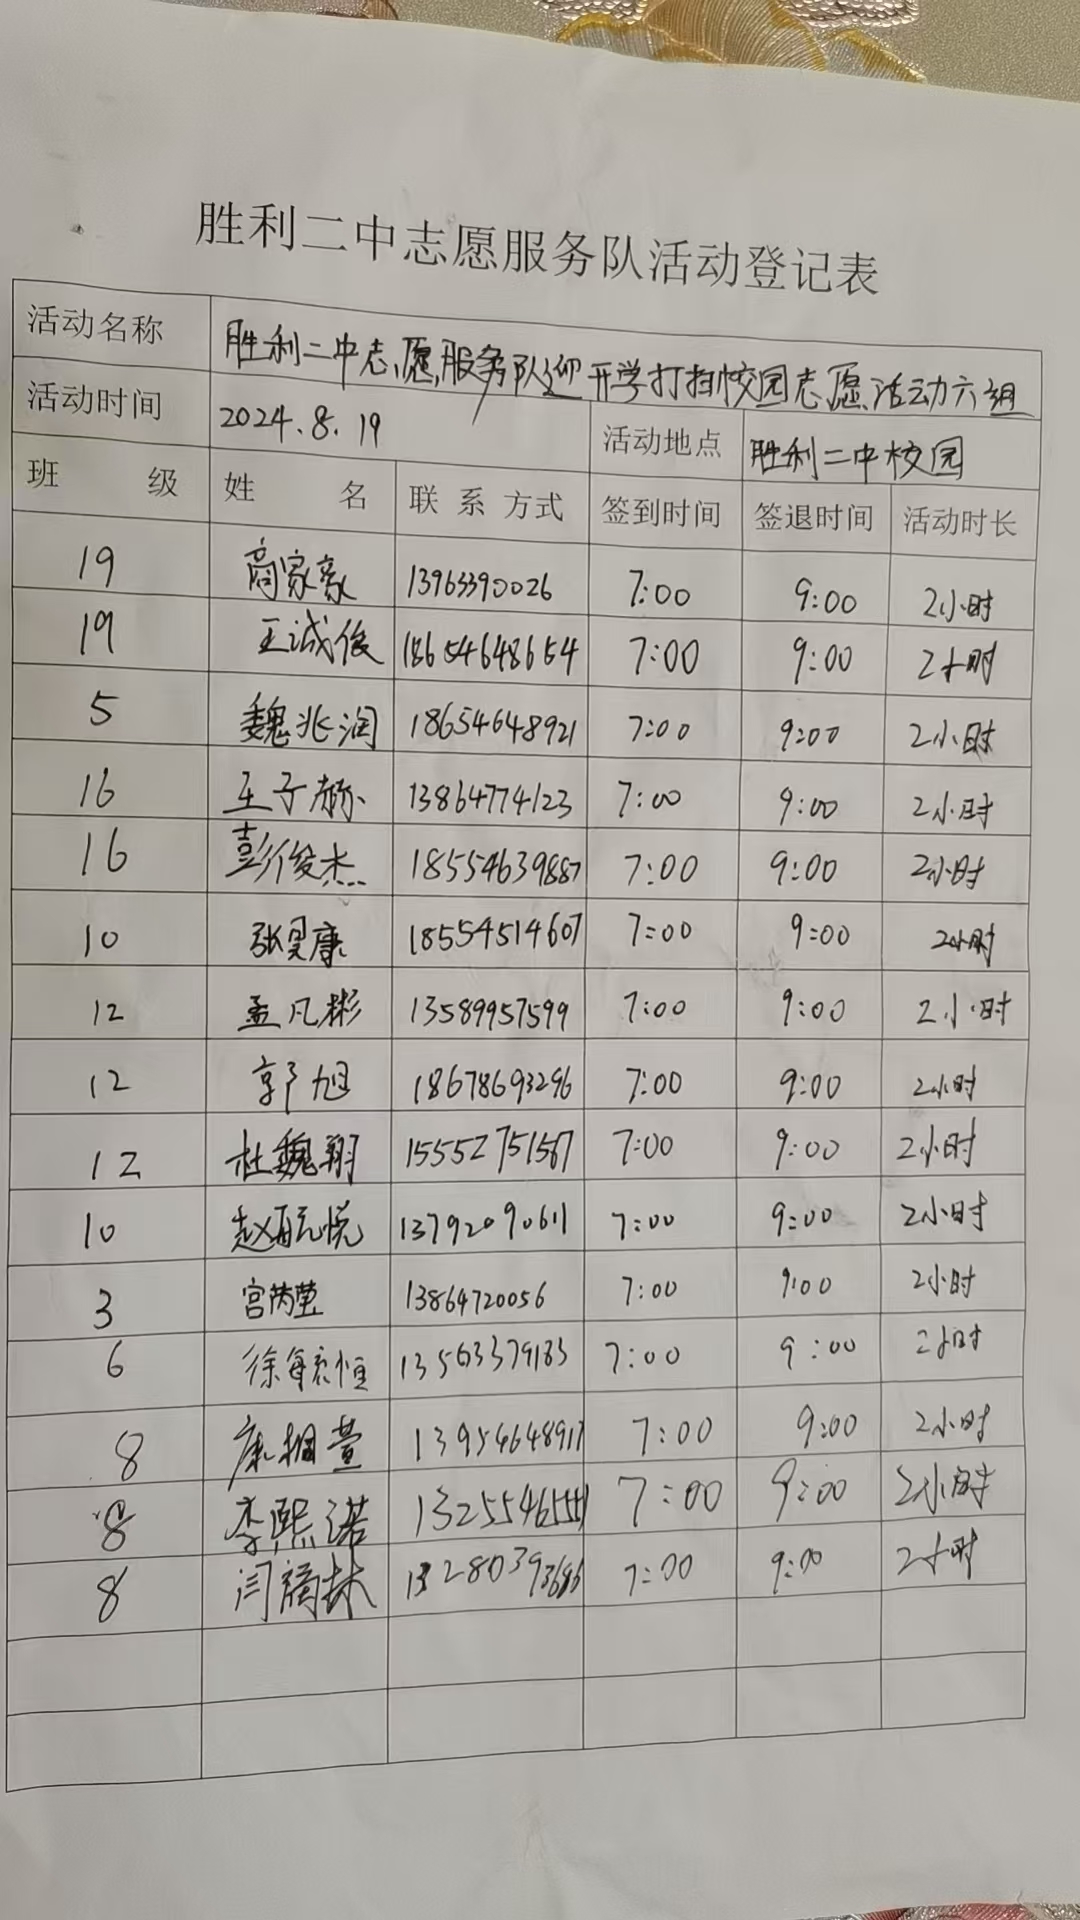 胜利二中志愿服务队活动登记表
活动名称 胜利二中志愿服务队迎开学打扫校园志愿活动六组
活动时间 2024.8.19 活动地点 胜利二中校园
班 级 姓 名 联系方式 签到时间 签退时间 活动时长
19 商家豪 13963390026 7:00 9:00 2小时
19 王诚俊 18654648654 7:00 9:00 2小时
5 魏兆润 18654648921 7:00 9:00 2小时
16 王子赫 13864774123 7:00 9:00 2小时
16 彭俊杰 18554639887 7:00 9:00 2小时
10 张昊康 18554514607 7:00 9:00 2小时
12 孟凡彬 13589957599 7:00 9:00 2小时
12 郭旭 18678693296 7:00 9:00 2小时
12 杜魏翔 15552751567 7:00 9:00 2小时
10 13792090611 7:00 9:00 2小时
3 宫芮莹 13864720056 7:00 9:00 2小时
6 13563379183 7:00 9:00 2小时
8 13954648917 7:00 9:00 2小时
8 李熙诺 7:00 9:00 2小时
8 7:00 9:00 2小时